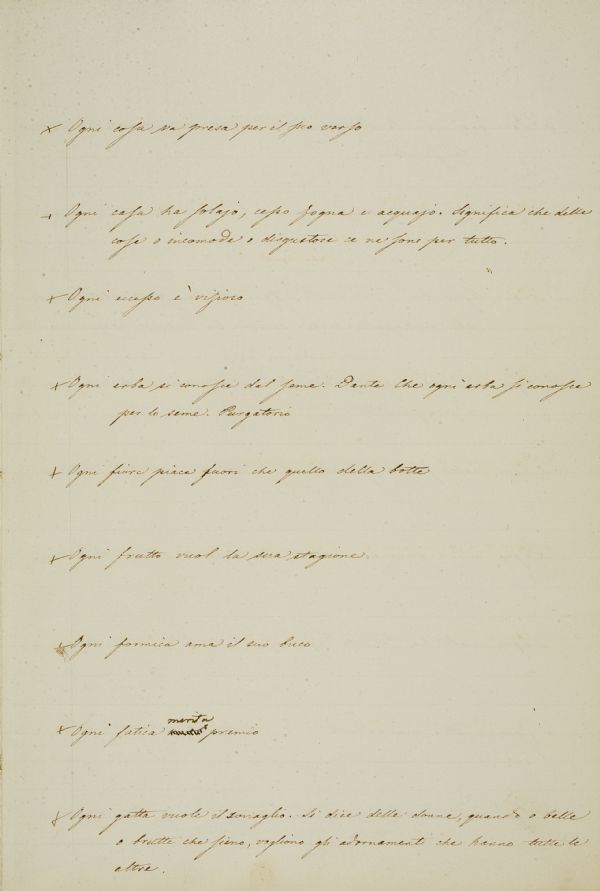 × Ogni cosa va presa per il suo verso
+ Ogni casa ha solajo, cesso fogna e acquajo. Significa che delle
cose o incomode o disgustose ce ne sono per tutto.
+ Ogni eccesso è vizioso
+ Ogni erba si conosce dal seme. Dante Che ogni erba si conosce
per lo seme. Purgatorio
+ Ogni fiore piace fuori che quello della botte
+ Ogni frutto vuol la sua stagione.
+ Ogni formica ama il suo buco
+ Ogni fatica merita premio
+ Ogni gatta vuole il sonaglio. Si dice delle donne, quando o belle
o brutte che sieno, vogliono gli adornamenti che hanno tutte le
altre.